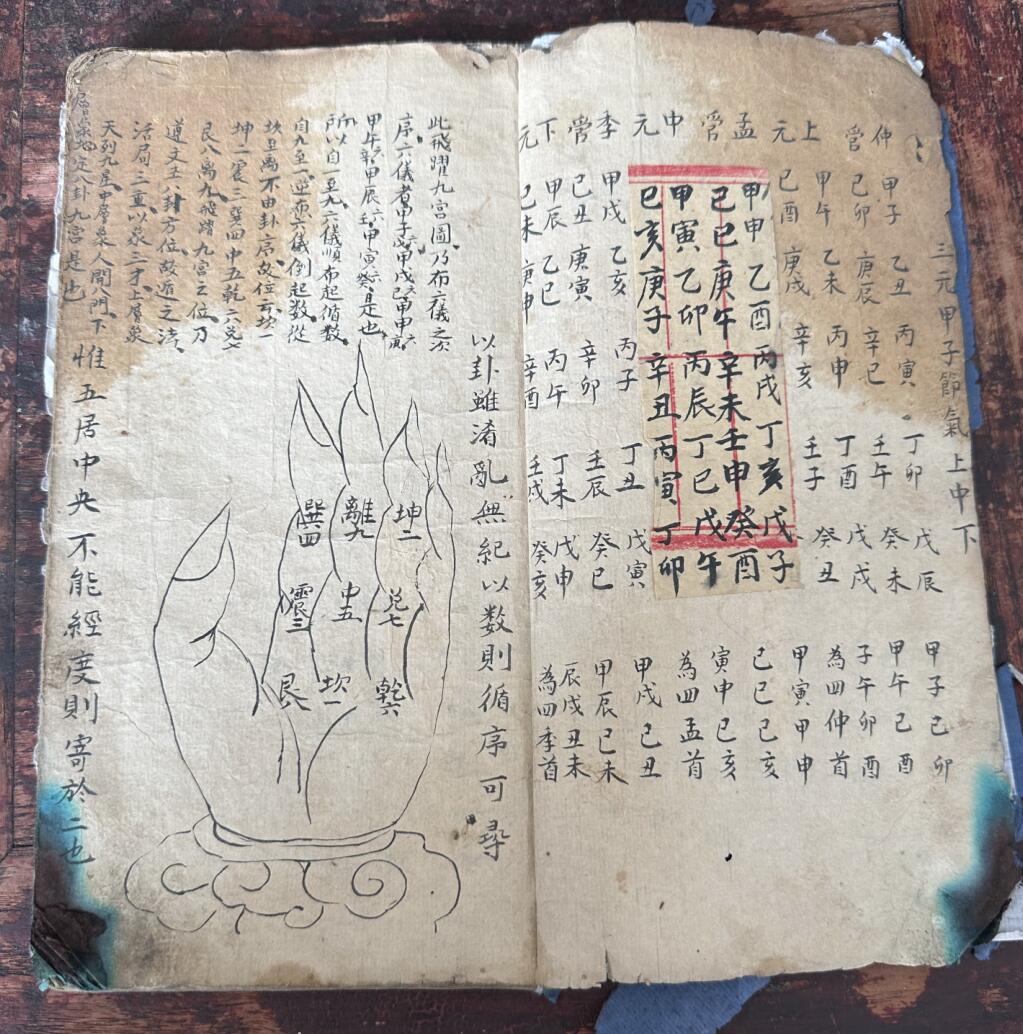 三元甲子節氣上中下
仲管上元孟管中元季管下元
甲子 乙丑 丙寅 丁卯 戊辰
己卯 庚辰 辛巳 壬午 癸未
甲午 乙未 丙申 丁酉 戊戌
己酉 庚戌 辛亥 壬子 癸丑
甲申 乙酉 丙戌 丁亥 戊子
己巳 庚午 辛未 壬申 癸酉
甲寅 乙卯 丙辰 丁巳 戊午
己亥 庚子 辛丑 丙寅 丁卯
甲戌 乙亥 丙子 丁丑 戊寅
己丑 庚寅 辛卯 壬辰 癸巳
甲辰 乙巳 丙午 丁未 戊申
己未 庚申 辛酉 壬戌 癸亥
甲子己卯
甲午己酉
子午卯酉
為四仲首
甲寅甲申
己巳己亥
寅申巳亥
為四孟首
甲戌己丑
甲辰己未
辰戌丑未
為四季首
以卦雖淆亂無紀以数則循序可尋
此飛躍九宮圖乃布六儀之次
序六儀者甲子戊甲戌己甲申庚
甲午辛甲辰壬甲寅癸是也
所以自一至九六儀順布起循数
自九至一逆布六儀倒起数從
坎至離不由卦序故位云坎一
坤二震三巽四中五乾六兌七
艮八離九飛九宮之位乃
遵文王八卦方位故遁之法
活局三重以象三才上層象
天列九星中層象人開八門下
層象地定八卦九宮是也
坤二
離九
巽四
兌七
中五
震三
乾六
坎一
艮
惟五居中央不能經度則寄於二也